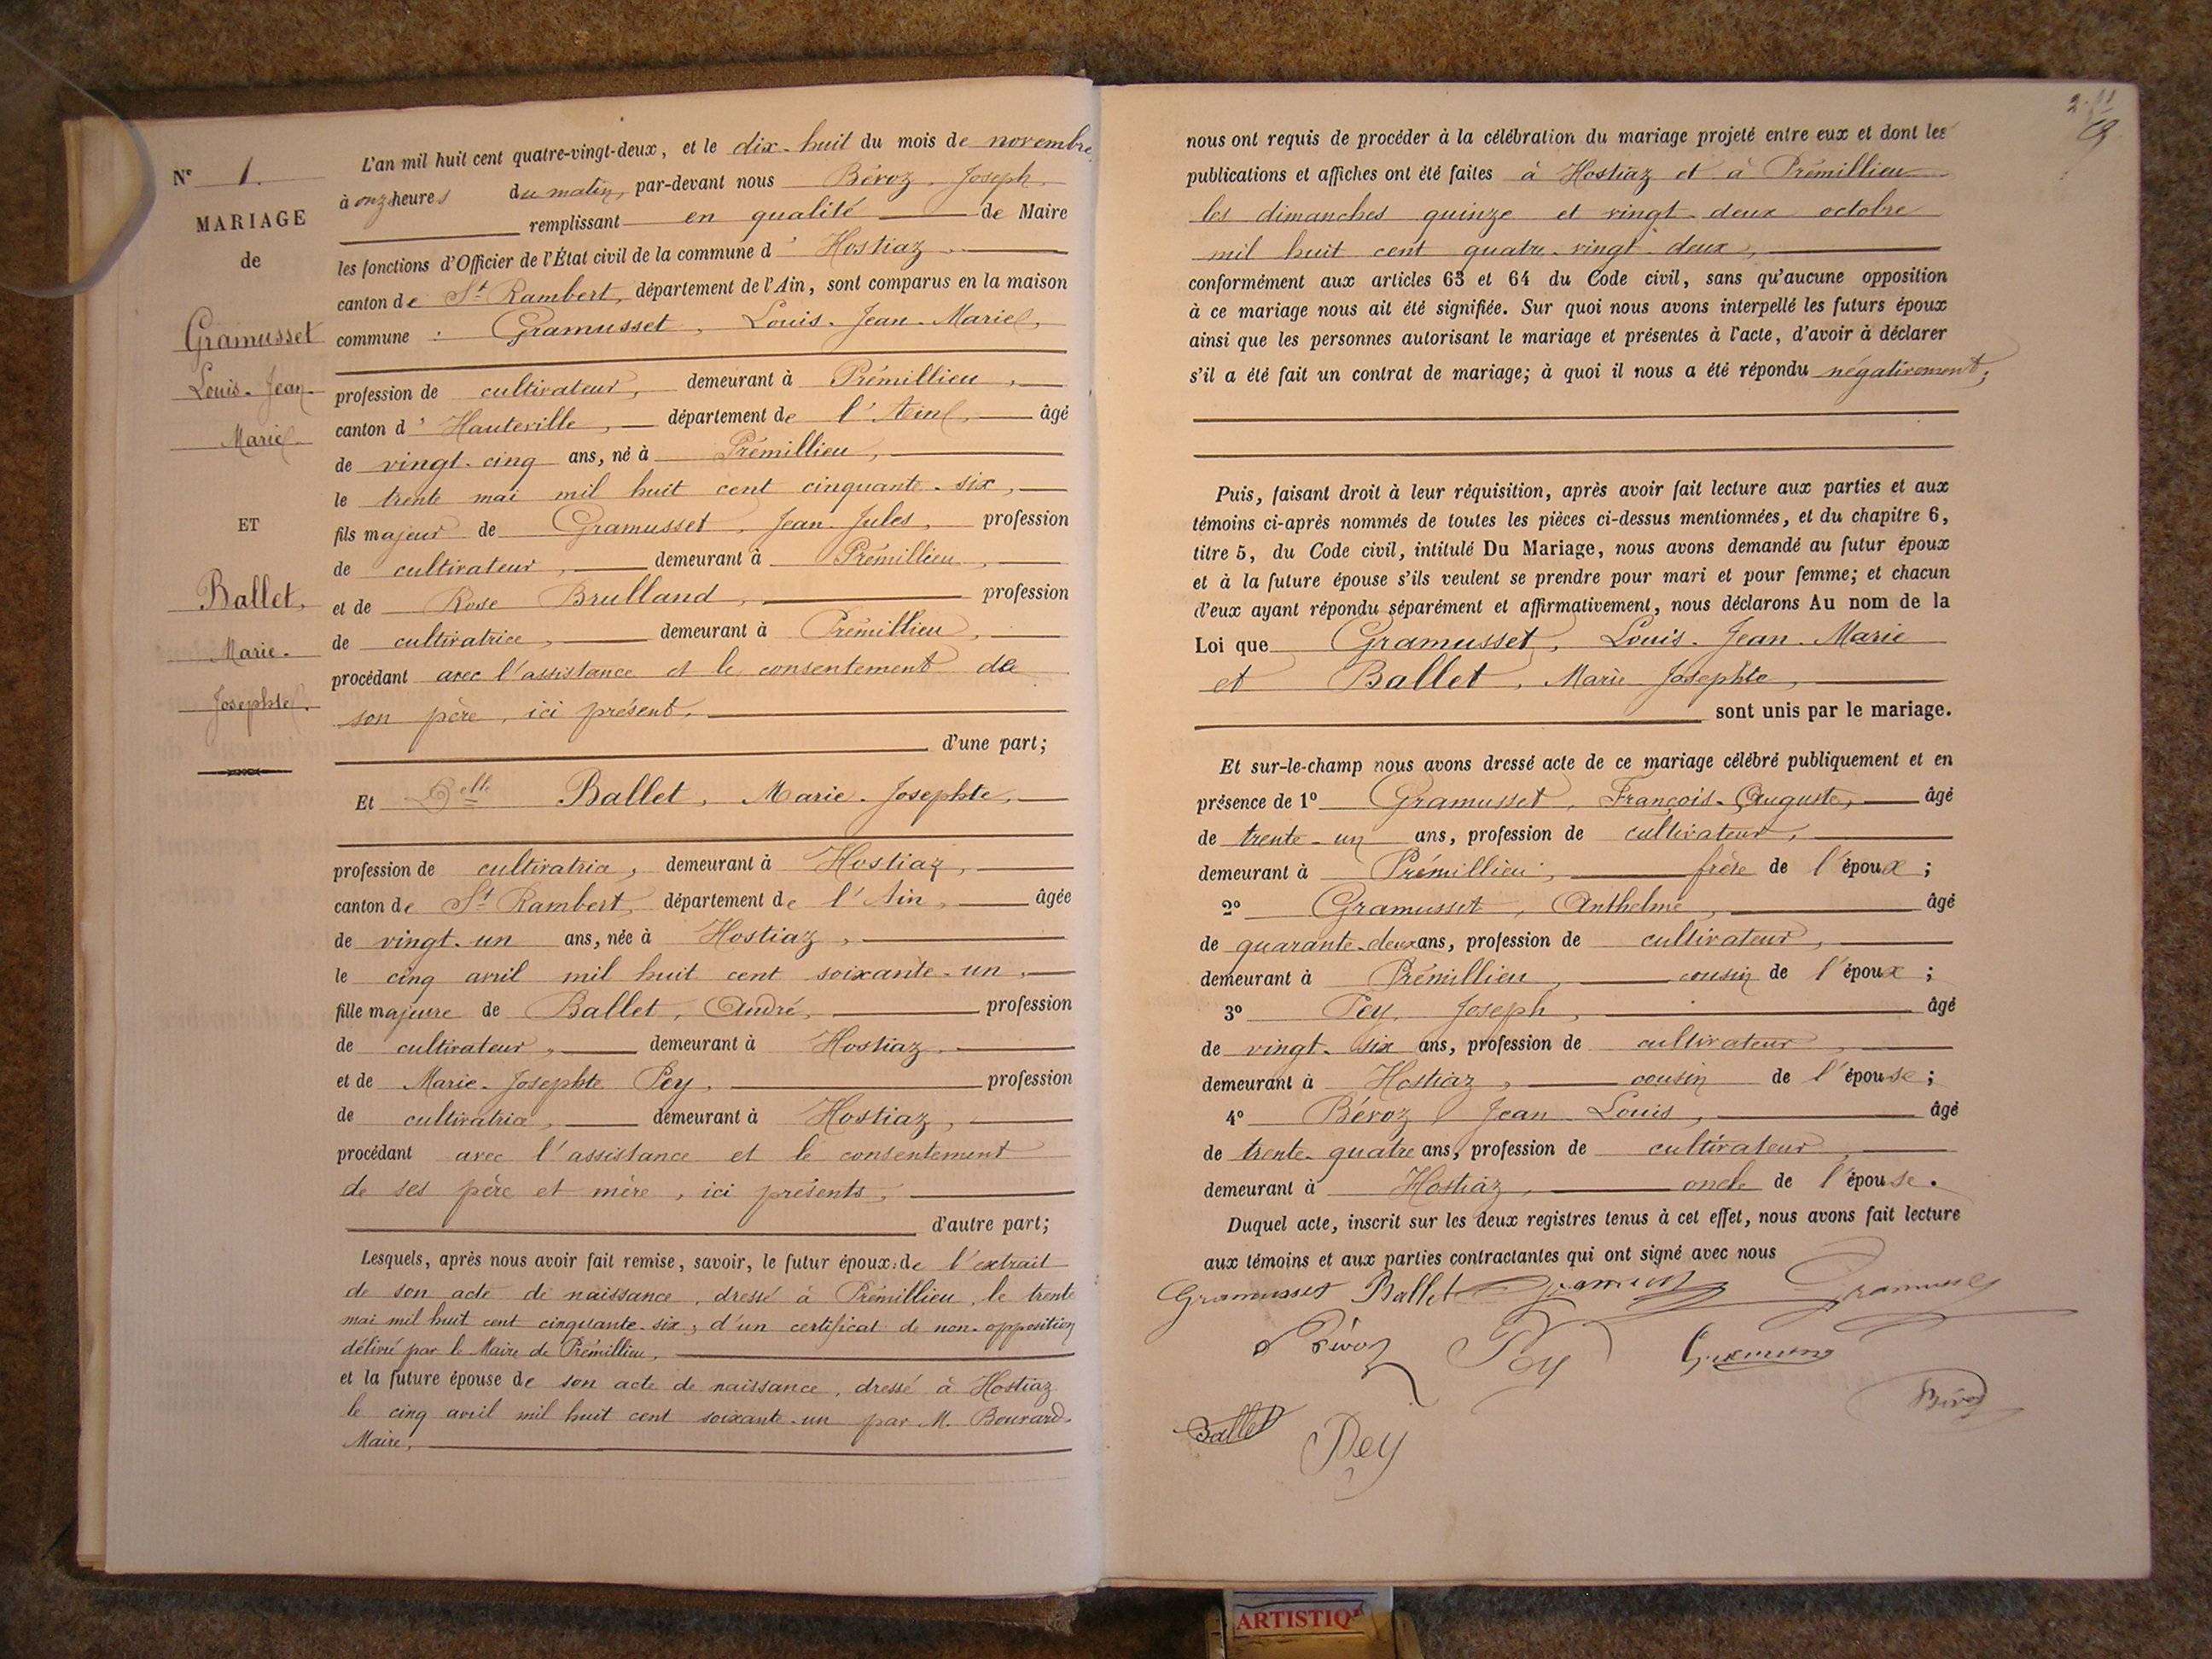 Nº 1.
MARIAGE
de
Gramusset
Louis-Jean-
Marie
ET
Ballet,
Marie-
Josephte.
L'an mil huit cent quatre-vingt-deux, et le dix-huit du mois de novembre
à onze heures du matin, par-devant nous Béroz, Joseph,
remplissant en qualité de Maire
les fonctions d'Officier de l'État civil de la commune d'Hostiaz
canton de St Rambert, département de l'Ain, sont comparus en la maison
commune : Gramusset, Louis-Jean-Marie,
profession de cultivateur, demeurant à Prémillieu,
canton d'Hauteville, département de l'Ain, âgé
de vingt-cinq ans, né à Prémillieu,
le trente mai mil huit cent cinquante-six,
fils majeur de Gramusset, Jean-Jules, profession
de cultivateur, demeurant à Prémillieu,
et de Rose Brulland, profession
de cultivatrice, demeurant à Prémillieu,
procédant avec l'assistance et le consentement de
son père, ici présent,
d'une part;
Et Delle Ballet, Marie-Josephte,
profession de cultivatrice, demeurant à Hostiaz,
canton de St Rambert, département de l'Ain, âgée
de vingt-un ans, née à Hostiaz,
le cinq avril mil huit cent soixante-un,
fille majeure de Ballet, André, profession
de cultivateur, demeurant à Hostiaz,
et de Marie-Josephte Pey, profession
de cultivatrice, demeurant à Hostiaz,
procédant avec l'assistance et le consentement
de ses père et mère, ici présents,
d'autre part;
Lesquels, après nous avoir fait remise, savoir, le futur époux: de l'extrait
de son acte de naissance, dressé à Prémillieu, le trente
mai mil huit cent cinquante-six; d'un certificat de non-opposition
délivré par le Maire de Prémillieu,
et la future épouse de son acte de naissance, dressé à Hostiaz
le cinq avril mil huit cent soixante-un par M. Bourard,
Maire,
nous ont requis de procéder à la célébration du mariage projeté entre eux et dont les
publications et affiches ont été faites à Hostiaz et à Prémillieu
les dimanches quinze et vingt-deux octobre
mil huit cent quatre-vingt-deux,
conformément aux articles 63 et 64 du Code civil, sans qu'aucune opposition
à ce mariage nous ait été signifiée. Sur quoi nous avons interpellé les futurs époux
ainsi que les personnes autorisant le mariage et présentes à l'acte, d'avoir à déclarer
s'il a été fait un contrat de mariage; à quoi il nous a été répondu négativement;
Puis, faisant droit à leur réquisition, après avoir fait lecture aux parties et aux
témoins ci-après nommés de toutes les pièces ci-dessus mentionnées, et du chapitre 6,
titre 5, du Code civil, intitulé Du Mariage, nous avons demandé au futur époux
et à la future épouse s'ils veulent se prendre pour mari et pour femme; et chacun
d'eux ayant répondu séparément et affirmativement, nous déclarons Au nom de la
Loi que Gramusset, Louis-Jean-Marie
et Ballet, Marie-Josephte,
sont unis par le mariage.
Et sur-le-champ nous avons dressé acte de ce mariage célébré publiquement et en
présence de 1º Gramusset, François-Auguste, âgé
de trente-un ans, profession de cultivateur,
demeurant à Prémillieu, frère de l'époux;
2º Gramusset, Anthelme, âgé
de quarante-deux ans, profession de cultivateur,
demeurant à Prémillieu, cousin de l'époux;
3º Pey, Joseph, âgé
de vingt-six ans, profession de cultivateur
demeurant à Hostiaz, cousin de l'épouse;
4º Béroz, Jean-Louis, âgé
de trente-quatre ans, profession de cultivateur
demeurant à Hostiaz, oncle de l'épouse.
Duquel acte, inscrit sur les deux registres tenus à cet effet, nous avons fait lecture
aux témoins et aux parties contractantes qui ont signé avec nous
Gramusset Ballet
Béroz Pey
Béroz
Ballet Pey
ARTISTIQ